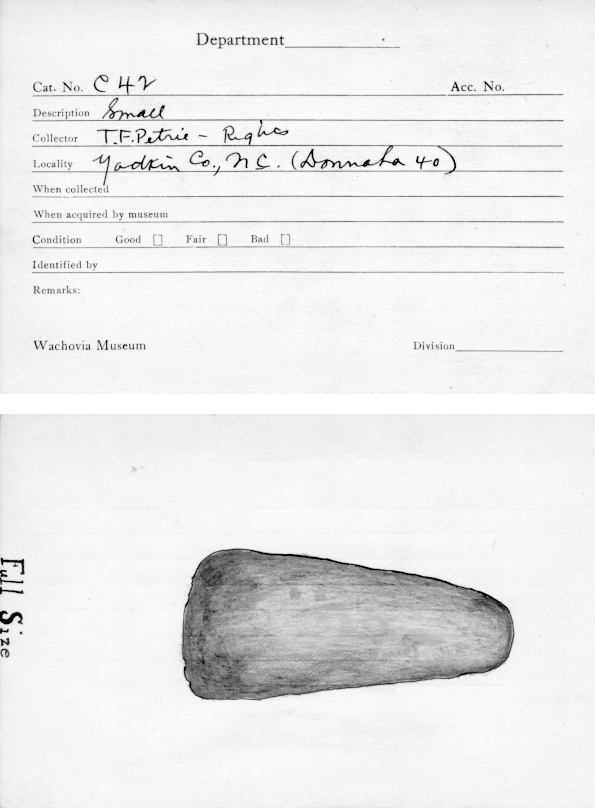 Department
Cat. No. C 42 Acc. No.
Description Small
Collector T.F. Petrie - Rights
Locality Yadkin Co., N.C. (Donnaha 40)
When collected
When acquired by museum
Condition Good [] Fair [] Bad []
Identified by
Remarks:
Wachovia Museum Division
Full Size